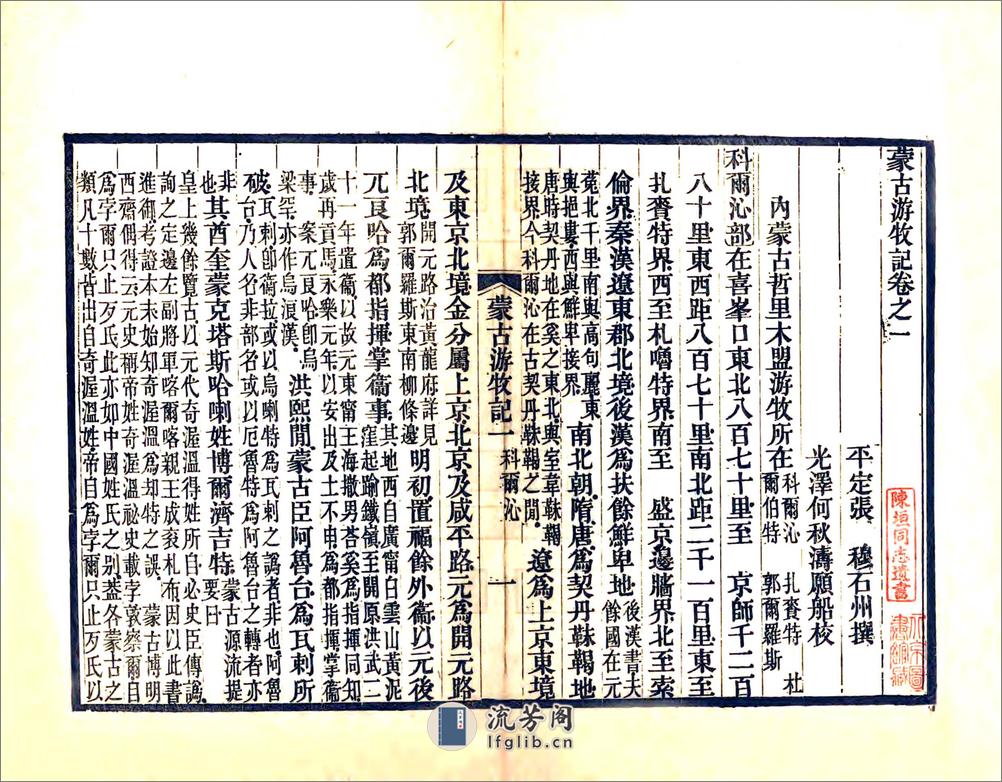 蒙古游牧記卷之一
平定張　穆石州撰
光澤何秋濤願船校
內蒙古哲里木盟游牧所在
科爾沁　扎賚特　杜
爾伯特　郭爾羅斯
科爾沁部在喜峯口東北八百七十里至　京師千二百
八十里東西距八百七十里南北距二千一百里東至
扎賚特界西至札嚕特界南至　盛京邊牆界北至索
倫界秦漢遼東郡北境後漢爲扶餘鮮卑地
後漢書夫
餘國在元
菟北千里南與高句麗東
與挹婁西與鮮卑接界
南北朝隋唐爲契丹靺鞨地
唐時契丹地在奚之東北與室韋靺鞨
接界今科爾沁在古契丹靺鞨之閒
遼爲上京東境
蒙古游牧記一
科爾沁
一
及東京北境金分屬上京北京及咸平路元爲開元路
北境
開元路治黃龍府詳見
郭爾羅斯東南柳條邊
明初置福餘外衞以元後
兀良哈爲都指揮掌衞事
其地西自廣甯白雲山黃泥
窪起踰鐵嶺至開原洪武二
十一年遣衞以故元東甯王海撒男荅奚爲指揮同知
歲再貢馬永樂元年以安出及土不申爲都指揮掌衞
事　案兀良哈卽烏
梁罕亦作烏浪漢
洪熙閒蒙古臣阿魯台爲瓦剌所
破
瓦剌卽衞拉特或以烏喇特爲瓦剌之譌者非也阿魯
台乃人名非部名或以厄魯特爲阿魯台之轉者亦
非
也
其酋奎蒙克塔斯哈喇姓博爾濟吉特
蒙古源流提
要曰
皇上幾餘覽古以元代奇渥溫得姓所自必史臣傳譌
詢之定邊左副將軍喀爾喀親王成衮札布因以此書
進御考證本末始知奇渥溫爲却特之誤　蒙古博明
西齋偶得云元史稱帝姓奇渥溫祕史載孛敦察爾自
爲孛爾只止歹氏此亦如中國姓氏之別蓋各蒙古之
類凡十數皆出自奇渥溫姓帝自爲孛爾只止歹氏以
陳垣同志遺書
流芳阁
lfglib.cn